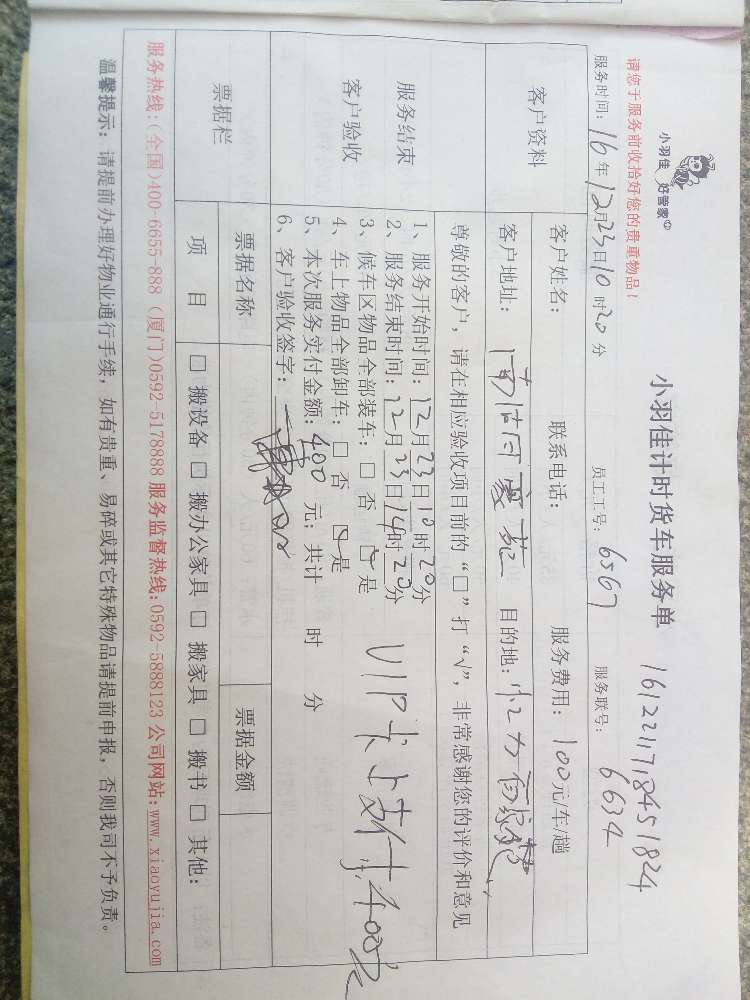 小羽佳 好管家©
小羽佳计时货车服务单 1612211718451824
请您于服务前收拾好您的贵重物品!
服务时间: 16年12月23日10时20分 员工工号: 6567 服务联号: 6634
客户资料
客户姓名: 联系电话: 服务费用: 100元/车/趟
客户地址: 目的地:
服务结束
客户验收
尊敬的客户, 请在相应验收项目前的“□”打“√”, 非常感谢您的评价和意见
1、服务开始时间: 12月23日10时20分
2、服务结束时间: 12月23日14时20分
3、候车区物品全部装车: □ 否 □ 是
4、车上物品全部卸车: □ 否 □ 是
5、本次服务实付金额: 400 元; 共计 时 分
6、客户验收签字:
VIP卡上支付400元
票据栏
票据名称 票据金额
项 目 □ 搬设备 □ 搬办公家具 □ 搬家具 □ 搬书 □ 其他:
服务热线:(全国)400-6655-888 (厦门)0592-5178888 服务监督热线:0592-5888123 公司网站:www.xiaoyujia.com
温馨提示: 请提前办理好物业通行手续, 如有贵重、易碎或其它特殊物品请提前申报, 否则我司不予负责。